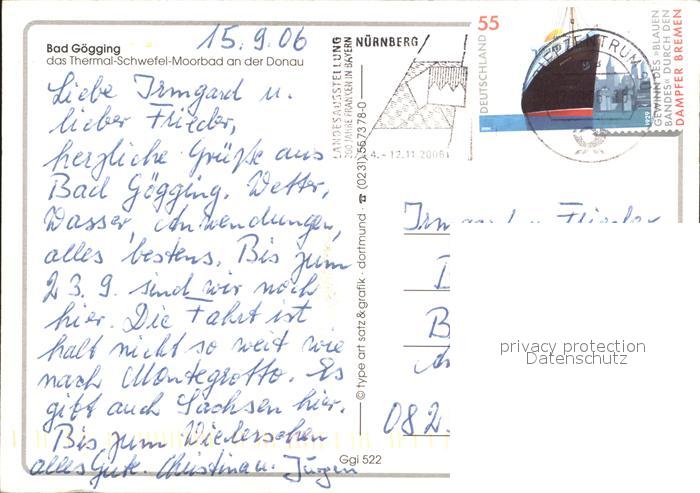 15.9.06
Bad Gögging
das Thermal-Schwefel-Moorbad an der Donau
Liebe Irmgard u.
lieber Frieder,
herzliche Grüße aus
Bad Gögging. Wetter,
Wasser, Anwendungen,
alles bestens. Bis zum
23.9. sind wir noch
hier. Die Fahrt ist
halt nicht so weit wie
nach Montegrotto. Es
gibt auch Sachsen hier.
Bis zum Wiedersehen
alles Gute. Christina u. Jürgen
LANDESAUSSTELLUNG
200 JAHRE FRANKEN IN BAYERN
NÜRNBERG
4. - 12.11.2006
BRIEFZENTRUM
DEUTSCHLAND
55
GEWINN DES »BLAUEN
BANDES« DURCH DEN
DAMPFER BREMEN
1929
© type art satz & grafik · dortmund · ☎ (0231) 55 73 78-0
Ggi 522
Irmgard u. Frieder
B
082
privacy protection
Datenschutz